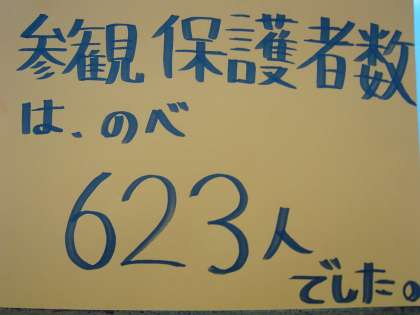 参観保護者数
は、のべ
623人
でした。